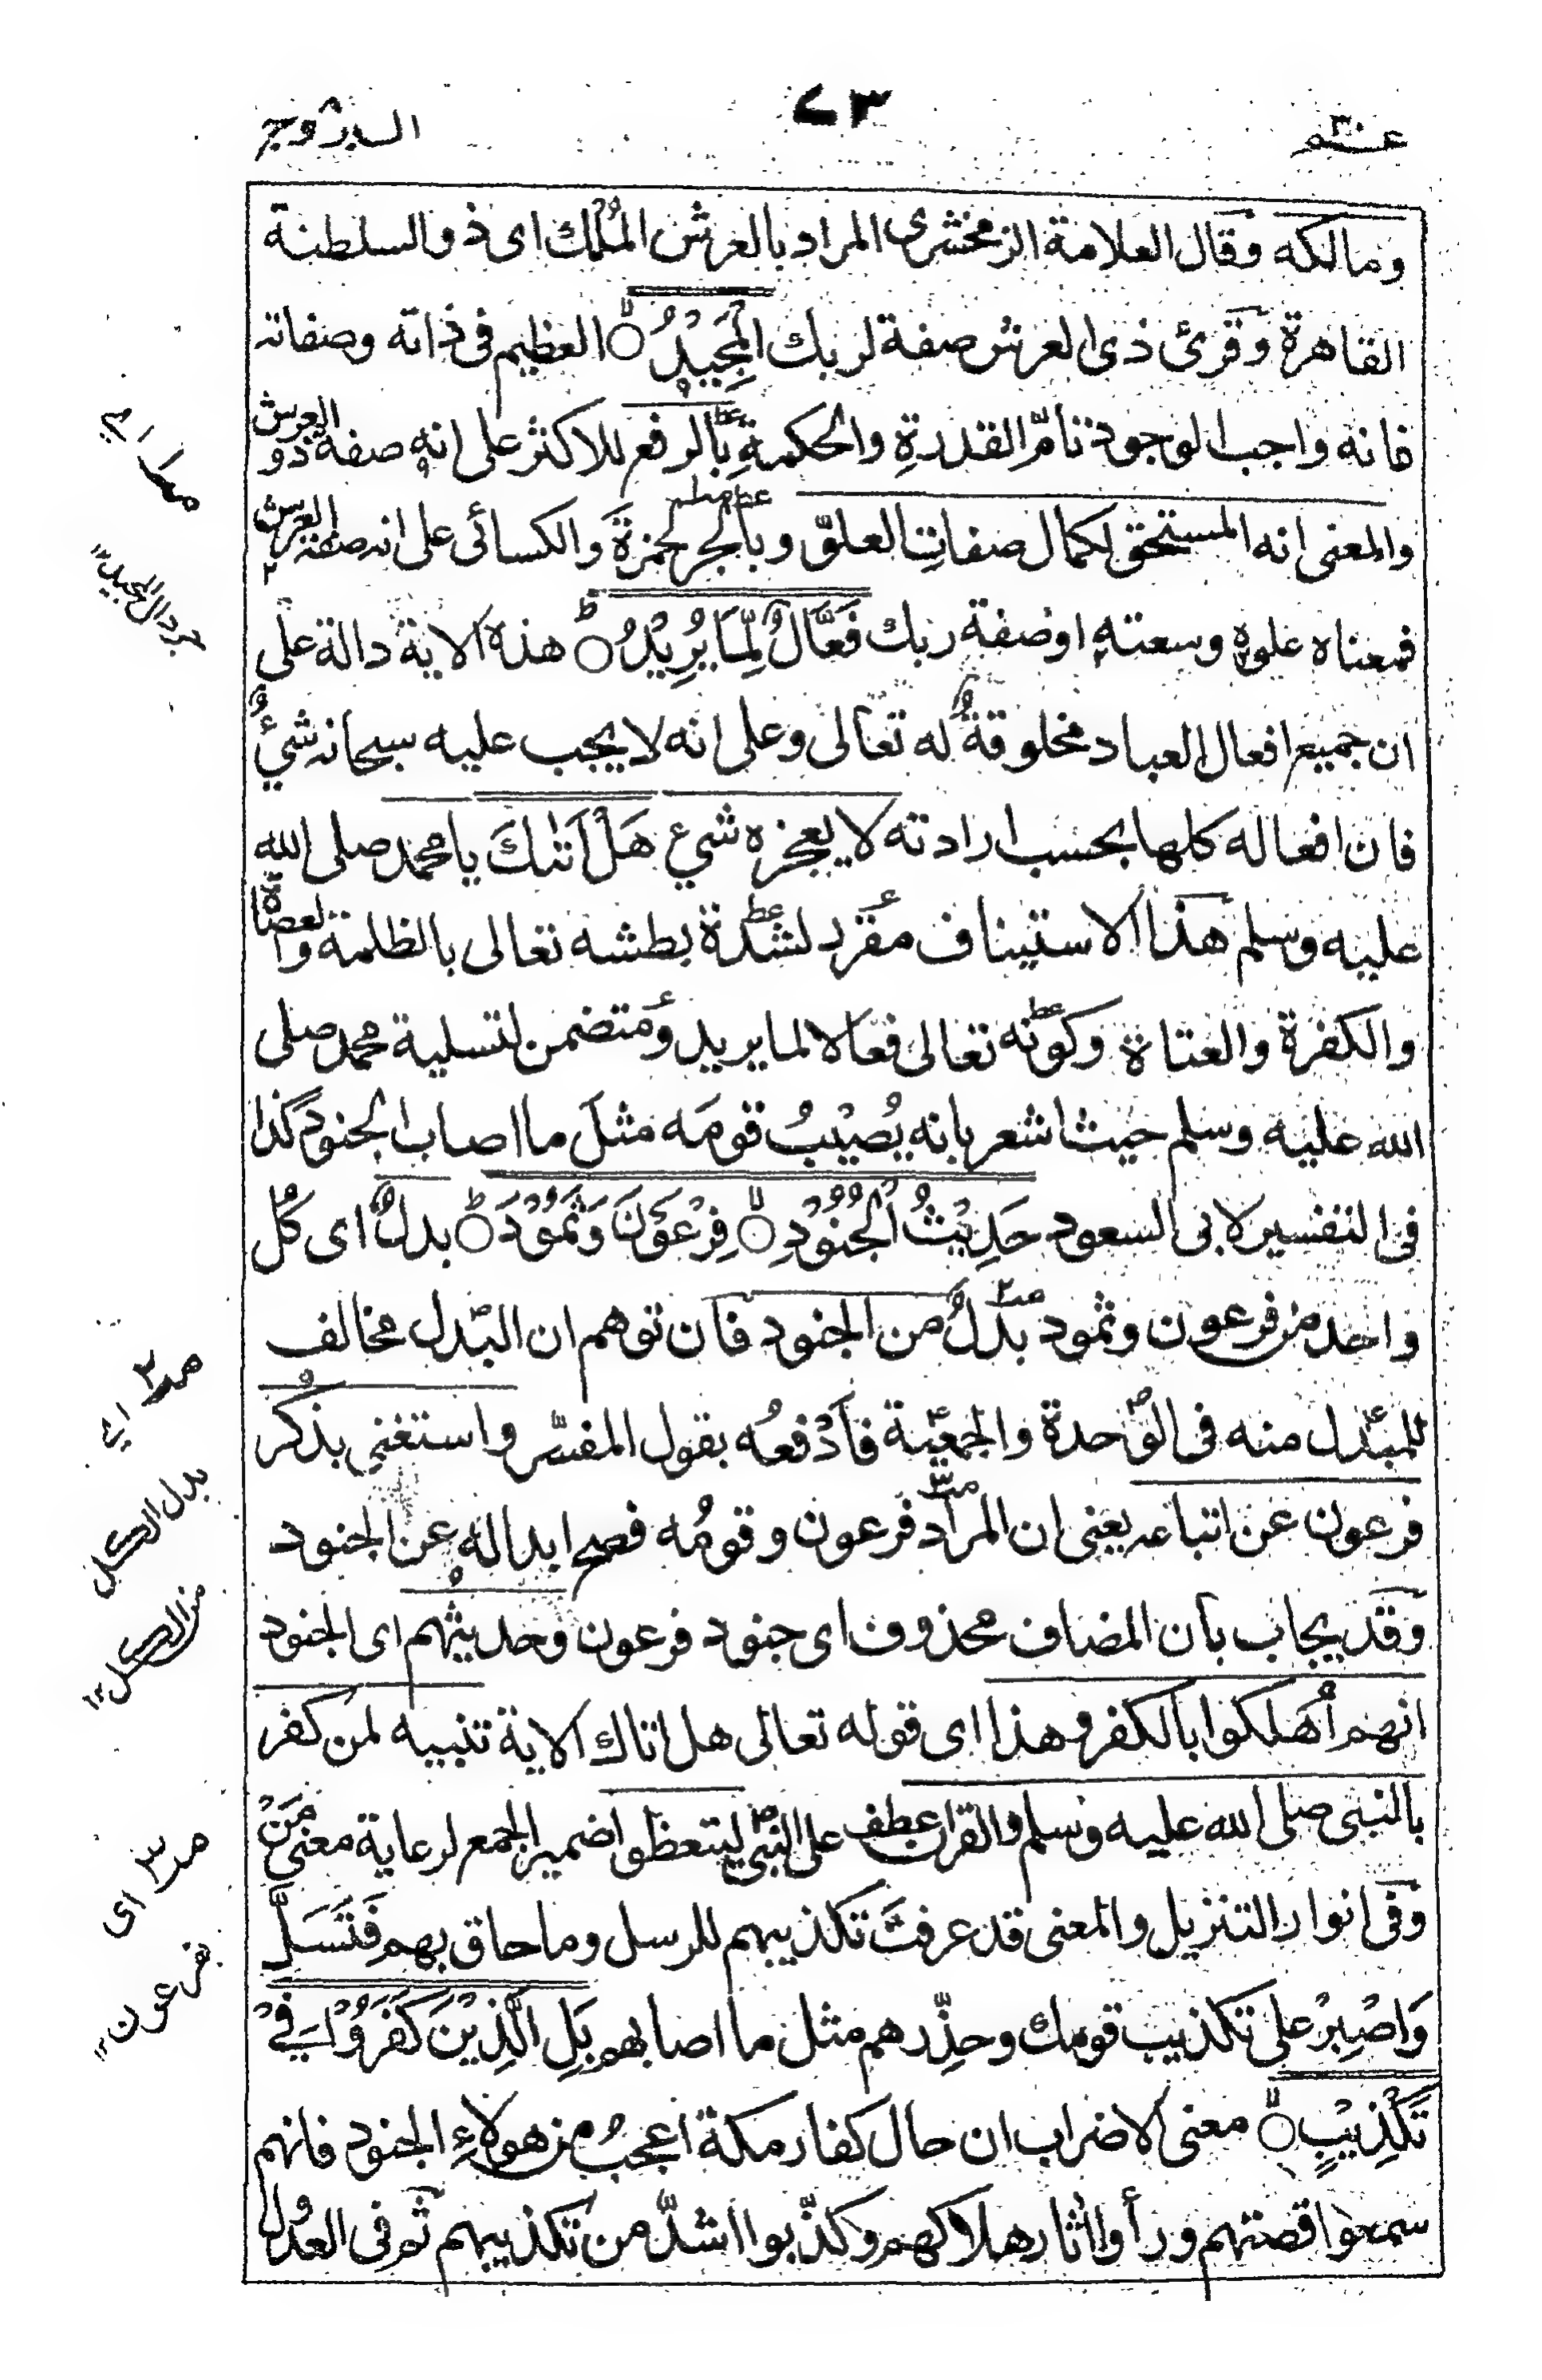 عم ٣٠
٧٣
البروج
ومالكه وقال العلامة الزمخشرى المراد بالعرش المُلك اى ذو السلطنة
القاهرة وقرئ ذى العرش صفة لربك الْمَجِيْدُ العظيم فى ذاته وصفاته
فانه واجب الوجود تامّ القدرةِ والحكمةِ بالرفع للاكثر على انه صفة ذو العرش
والمعنى انه المستحق لكمال صفاتِ العلوّ وبالجر لحمزةَ والكسائى على انه صفة العرش
فمعناه علوه وسعته او صفة ربك فَعَّالٌ لِّمَا يُرِيْدُ هذه الاية دالة على
ان جميع افعال العباد مخلوقةٌ له تعالى وعلى انه لا يجب عليه سبحانه شيءٌ
فان افعاله كلها بحسب ارادته لا يعجزه شيء هَلْ اَتٰىكَ يا محمد صلى الله
عليه وسلم هذا الاستيناف مقرر لشدة بطشه تعالى بالظلمة والعصاة
والكفرة والعتاة وكونه تعالى فعالا لما يريد ومتضمن لتسلية محمد صلى
الله عليه وسلم حيث اشعر بانه يُصيبُ قومَه مثلَ ما اصاب الجنود كذا
فى التفسير لابى السعود حَدِيْثُ الْجُنُوْدِ فِرْعَوْنَ وَثَمُوْدَ بدلٌ اى كل
واحد من فرعون وثمود بدلٌ من الجنود فان توهم ان البدل مخالف
للمبدل منه فى الوحدة والجمعية فادفعُه بقول المفسّر واستغنى بذكر
فرعون عن اتباعه يعنى ان المراد فرعون وقومُه فصح ابداله عن الجنود
وقد يجاب بان المضاف محذوف اى جنود فرعون وحديثهم اى الجنود
انهم اُهلكوا بالكفر وهذا اى قوله تعالى هل اتاك الاية تنبيه لمن كفر
بالنبى صلى الله عليه وسلم والقران عطف على النبى ليتعظوا ضمير الجمع لرعاية معنى مَنْ
وفى انوار التنزيل والمعنى قد عرفتَ تكذيبهم للرسل وما حاق بهم فَتَسَلَّ
وَاصْبِرْ على تكذيب قومك وحذّرهم مثل ما اصابهم بَلِ الَّذِيْنَ كَفَرُوْا فِيْ
تَكْذِيْبٍ معنى الاضراب ان حال كفار مكة اعجبُ من هولاءِ الجنود فانهم
سمعوا قصتهم ورأوا اٰثار هلاكهم وكذّبوا اشدّ من تكذيبهم ثم فى العدول
بجر دال المجيد ١٢
صـ٢ اى
بدل الكل
من الكل ١٢
صـ٣ اى
بفرعون ١٢